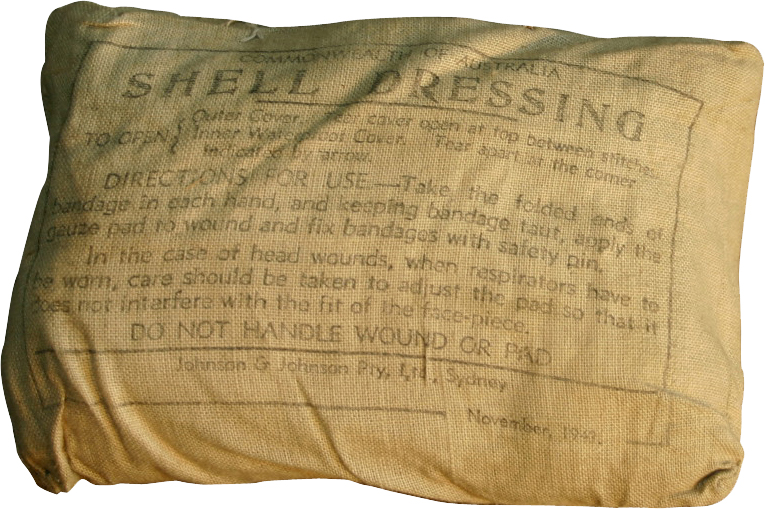 COMMONWEALTH OF AUSTRALIA
SHELL DRESSING
TO OPEN { Outer Cover. cover open at top between stitches.
Inner Waterproof Cover. Tear apart at the corner
indicated by arrow.
DIRECTIONS FOR USE—Take the folded ends of
bandage in each hand, and keeping bandage taut, apply the
gauze pad to wound and fix bandages with safety pin.
In the case of head wounds, when respirators have to
be worn, care should be taken to adjust the pad so that it
does not interfere with the fit of the face-piece.
DO NOT HANDLE WOUND OR PAD
Johnson & Johnson Pty. Ltd., Sydney
November, 1941.